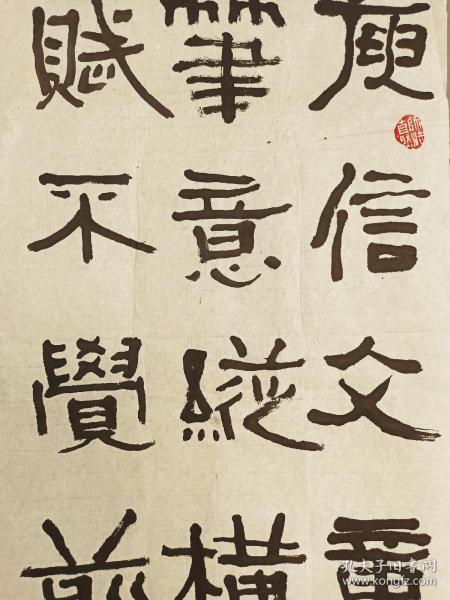 庾信文章
筆意縱橫
賦不覺前
孔夫子旧书网
www.kongfz.com